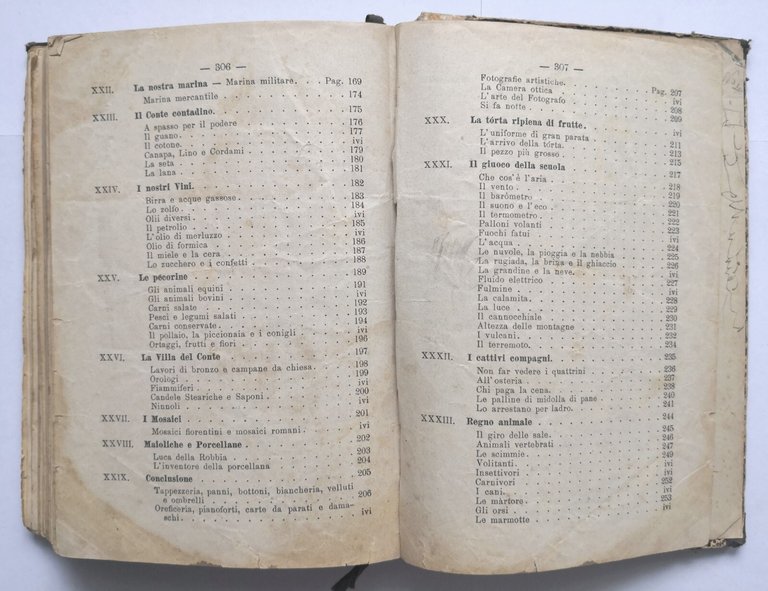 — 306 —
XXII. La nostra marina — Marina militare. . . Pag. 169
Marina mercantile . . . 174
XXIII. Il Conte contadino. . . 175
A spasso per il podere . . . 176
Il guano. . . 177
Il cotone. . . ivi
Canapa, Lino e Cordami . . . 179
La seta . . . 180
La lana . . . 181
XXIV. I nostri Vini. . . 182
Birra e acque gassose. . . 183
Lo zolfo. . . 184
Olii diversi . . . ivi
Il petrolio . . . 185
L'olio di merluzzo . . . ivi
Olio di formica . . . 186
Il miele e la cera . . . 187
Lo zucchero e i confetti . . . 188
XXV. Le pecorine . . . 189
Gli animali equini . . . 191
Gli animali bovini . . . ivi
Carni salate . . . 192
Pesci e legumi salati . . . 193
Carni conservate. . . 194
Il pollaio, la piccionaia e i conigli . . . ivi
Ortaggi, frutti e fiori . . . 196
XXVI. La Villa del Conte . . . 197
Lavori di bronzo e campane da chiesa. . . 198
Orologi . . . 199
Fiammiferi . . . ivi
Candele Steariche e Saponi . . . 200
Ninnoli . . . ivi
XXVII. I Mosaici . . . 201
Mosaici fiorentini e mosaici romani. . . ivi
XXVIII. Maioliche e Porcellane . . . 202
Luca della Robbia . . . 203
L'inventore della porcellana . . . 204
XXIX. Conclusione . . . 205
Tappezzeria, panni, bottoni, biancheria, velluti
e ombrelli . . . 206
Oreficeria, pianoforti, carte da parati e dama-
schi. . . ivi
— 307 —
Fotografie artistiche. . .
La Camera ottica . . . Pag. 297
L'arte del Fotografo . . . ivi
Si fa notte . . . 208
XXX. La tórta ripiena di frutte. . . 209
L'uniforme di gran parata . . .
L'arrivo della tórta. . . 211
Il pezzo più grosso . . . 213
XXXI. Il giuoco della scuola . . . 215
Che cos'è l'aria . . . 217
Il vento . . . 218
Il baròmetro . . . 219
Il suono e l'eco . . . 220
Il termometro . . . 221
Palloni volanti . . . 222
Fuochi fatui . . . 223
L'acqua . . . ivi
Le nuvole, la pioggia e la nebbia . . . 224
La rugiada, la brina e il ghiaccio . . . 225
La grandine e la neve. . . 226
Fluido elettrico . . . 227
Fulmine . . . ivi
La calamita . . . 228
La luce . . . 229
Il cannocchiale . . . 230
Altezza delle montagne . . . 231
I vulcani. . . 232
Il terremoto. . . 234
XXXII. I cattivi compagni. . . 235
Non far vedere i quattrini . . . 236
All'osteria . . . 237
Chi paga la cena. . . 238
Le palline di midolla di pane . . . 240
Lo arrestano per ladro. . . 241
XXXIII. Regno animale . . . 244
Il giro delle sale. . . 245
Animali vertebrati . . . 246
Le scimmie . . . 247
Volitanti . . . 249
Insettivori . . . ivi
Carnivori . . . 252
I cani. . . ivi
Le màrtore. . . 253
Gli orsi . . . ivi
Le marmotte . . . ivi